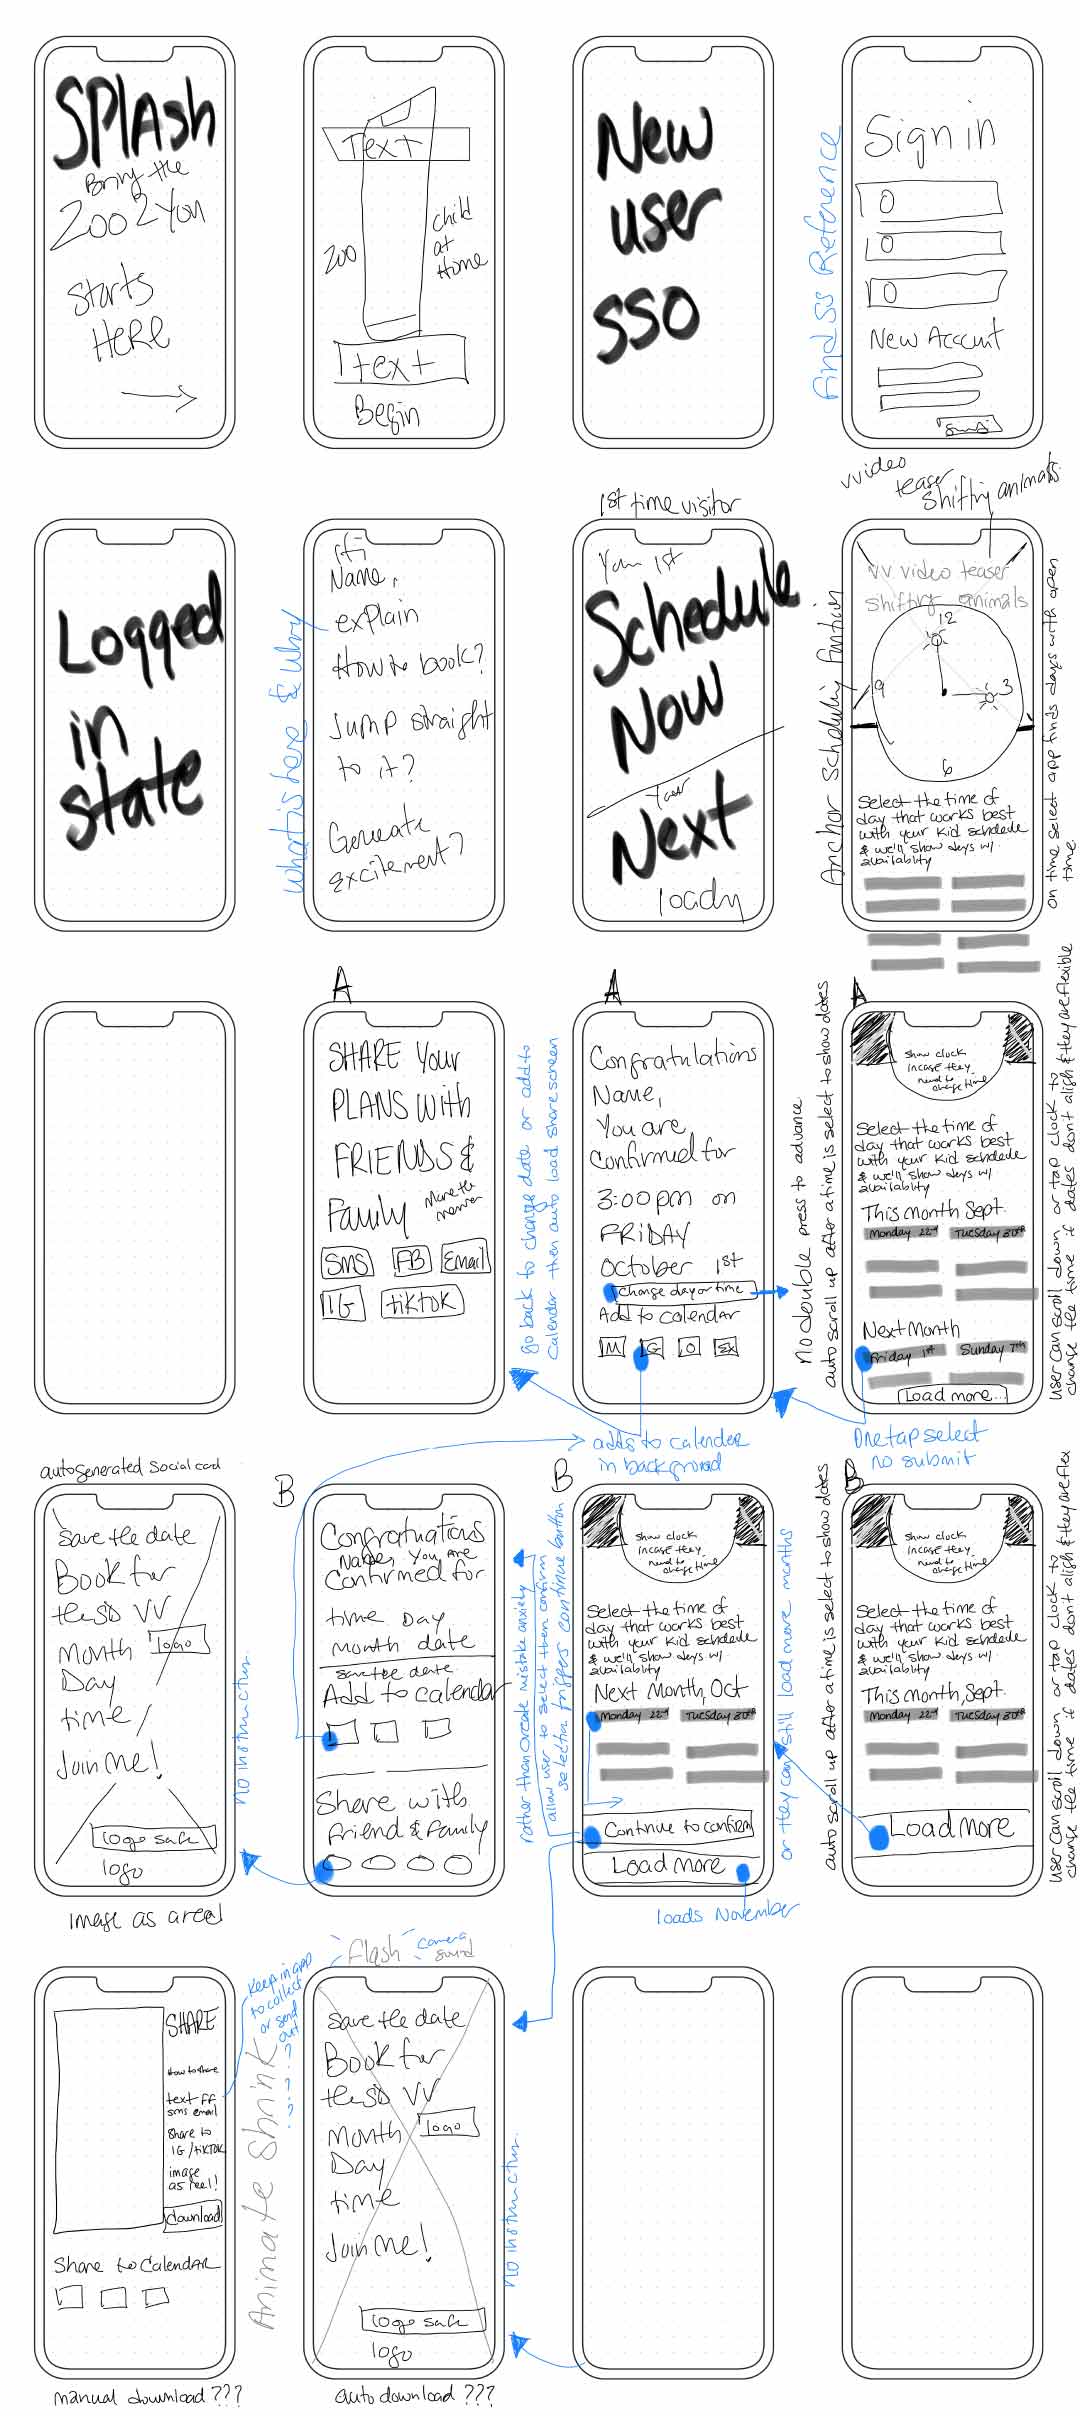 SPlAsh
Bring the
Zoo 2 You
Starts
HERE
Text
Zoo
child
at
Home
text
Begin
New
user
SSO
find SS Reference
Sign in
New Account
Logged
in
state
What is here & Why
Hi
Name,
explain
How to book?
Jump straight
to it?
Generate
excitement?
1st time visitor
Your 1st
Schedule
Now
Your
Next
VVideo
teaser
Shifting animals
Anchor Scheduling function
VV video teaser
shifting animals
12
3
6
9
Select the time of
day that works best
with your kid schedule
& we'll show days w/
availability
on time select app finds days with open
time.
A
SHARE Your
PLANS WITH
FRIENDS &
Family
More the
merrier
SMS
FB
Email
IG
tiktok
go back to change date or add to
Calendar then auto load share screen
A
Congratulations
Name,
You are
Confirmed for
3:00pm on
FRIDAY
October 1st
Change day or time
Add to calendar
M
G
O
adds to calender
in background
No double press to advance
auto scroll up after a time is select to show dates
A
Show clock
incase they
need to
change time
Select the time of
day that works best
with your kid schedule
& we'll show days w/
availability
This month Sept.
Monday 22nd
Tuesday 30th
Next Month
Friday 1st
Sunday 7th
Load more...
One tap select
no submit
User can scroll down or tap clock to
change the time if dates don't align & they are flexible
autogenerated Social card
Save the date
Book for
Month
logo
Day
time
Join me!
logo safe
logo
B
Congratuations
Name, You Are
Confirmed for
time Day
month date
save the date
Add to calendar
Share with
friend & family
rather than create mistake anxiety
allow user to select then confirm
selection triggers continue button
B
Show clock
incase they
need to
change time
Select the time of
day that works best
with your kid schedule
& we'll show days w/
availability
Next Month, Oct
Monday 22nd
Tuesday 30th
Continue to confirm
Load more
loads November
or they can still load more months
auto scroll up after a time is select to show dates
B
Show clock
incase they
need to
change time
Select the time of
day that works best
with your kid schedule
& we'll show days w/
availability
This month, Sept.
Monday 22nd
Tuesday 30th
Load more
User can scroll down or tap clock to
change the time if dates don't align & they are flex
SHARE
How to share
text FF
sms email
Share to
IG/tiktok
image
as reel!
download
Share to Calendar
manual download ???
Keep in app
to collect
or send
out
Animate Shrink
flash
camera
sound
Save the date
Book for
Month
logo
Day
time
Join Me!
logo safe
logo
auto download ???